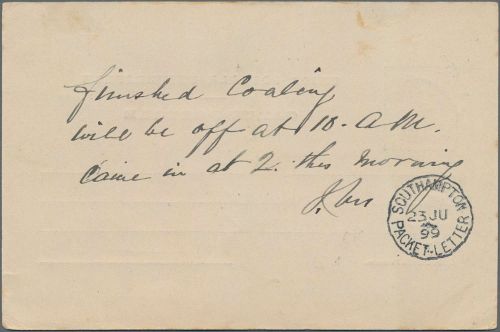 finished Coaling
will be off at 10-AM.
Came in at 2. this Morning
SOUTHAMPTON
23 JU
99
PACKET-LETTER